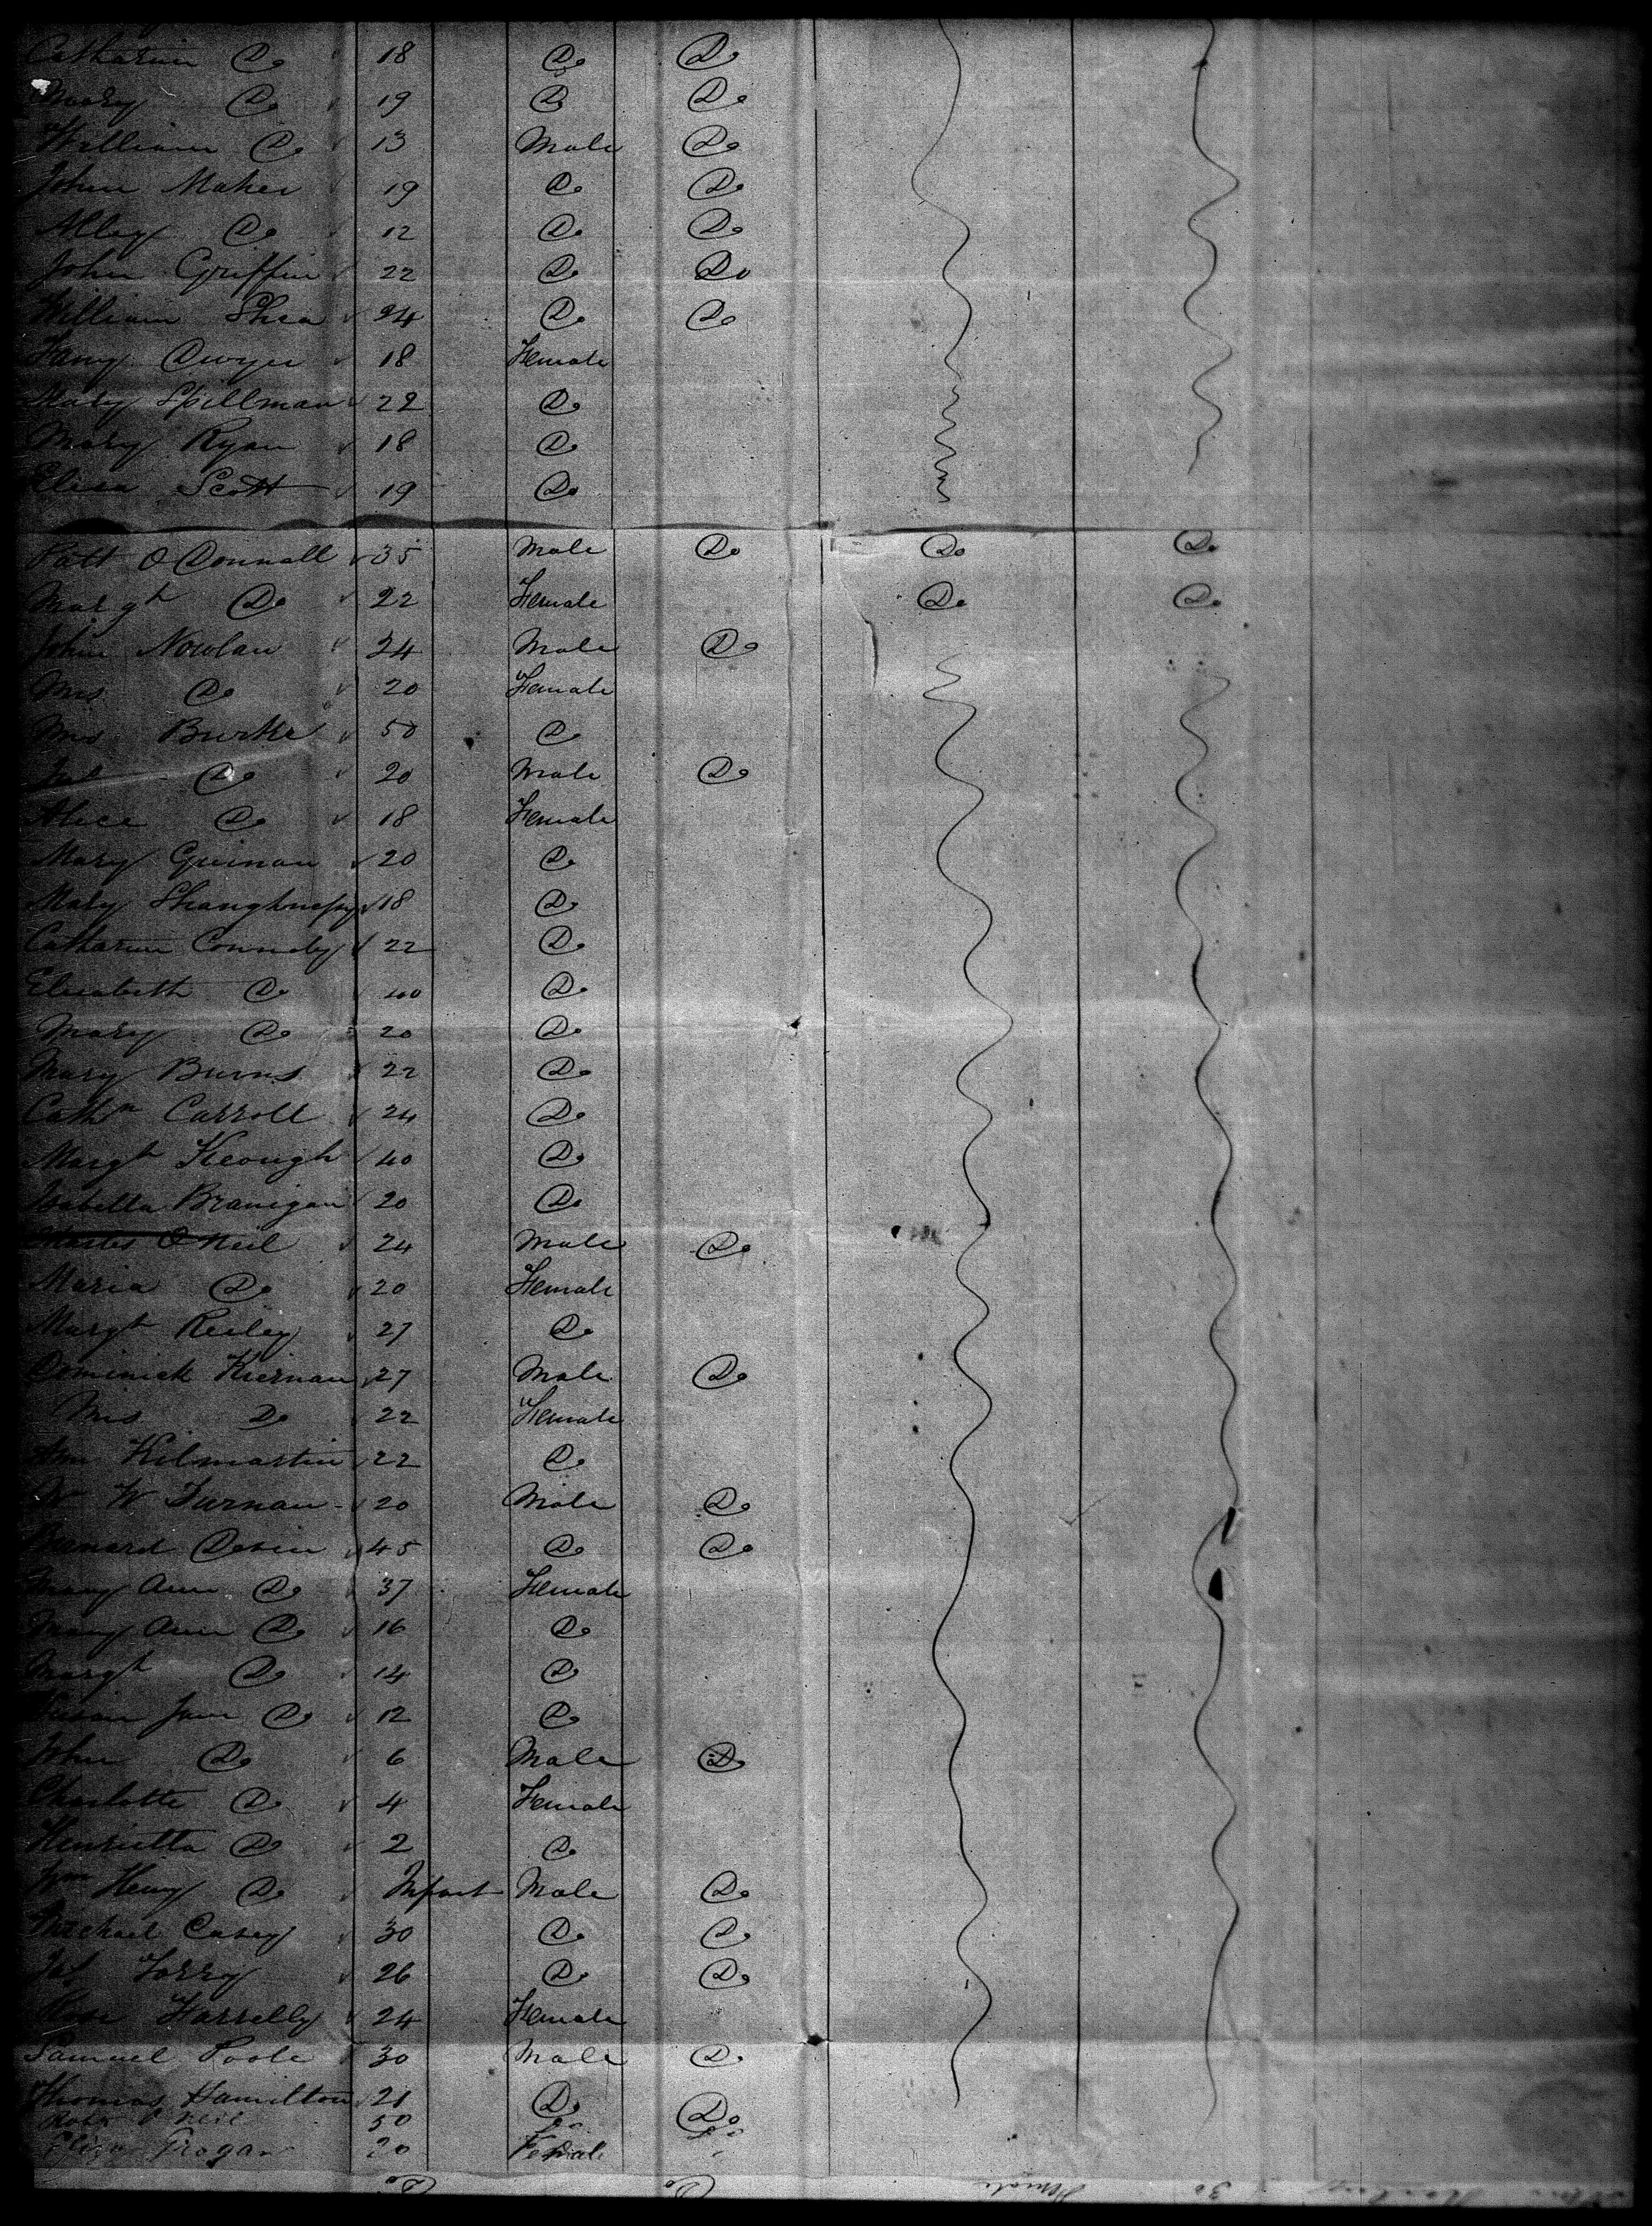 Catharine Do 18 Do Do
Mary Do 19 Do Do
William Do 13 Male Do
John Maher 19 Do Do
Alley Do 12 Do Do
John Griffin 22 Do Do
William Shea 24 Do Do
Fany Dwyer 18 Female
Mary Spillman 22 Do
Mary Ryan 18 Do
Eliza Scott 19 Do
Patt O Donnall 35 Male Do Do Do
Margt Do 22 Female Do Do
John Nowlan 24 Male Do
Mrs Do 20 Female
Mrs Burke 50 Do
Jas Do 20 Male Do
Alice Do 18 Female
Mary Guinan 20 Do
Mary Shaughnessy 18 Do
Catharine Connoly 22 Do
Elizabeth Do 40 Do
Mary Do 20 Do
Mary Burns 22 Do
Cathn Carroll 24 Do
Margt Keough 40 Do
Isabella Branigan 20 Do
O Neil 24 Male Do
Maria Do 20 Female
Margt Reiley 27 Do
Dominick Kiernan 27 Male Do
Mrs Do 22 Female
Ann Kilmartin 22 Do
W 20 Male Do
Bernard 45 Do Do
Mary Ann Do 37 Female
Mary Ann Do 16 Do
Margt Do 14 Do
Susan Jane Do 12 Do
John Do 6 Male Do
Charlotte Do 4 Female
Henrietta Do 2 Do
Wm Henry Do Infant Male Do
Michael Casey 30 Do Do
Jas Torry 26 Do Do
Rose Farrelly 24 Female
Samuel Poole 30 Male Do
Thomas Hamilton 21 Do Do
Robt O Neil 50 Do Do
Eliza Grogan 20 Female